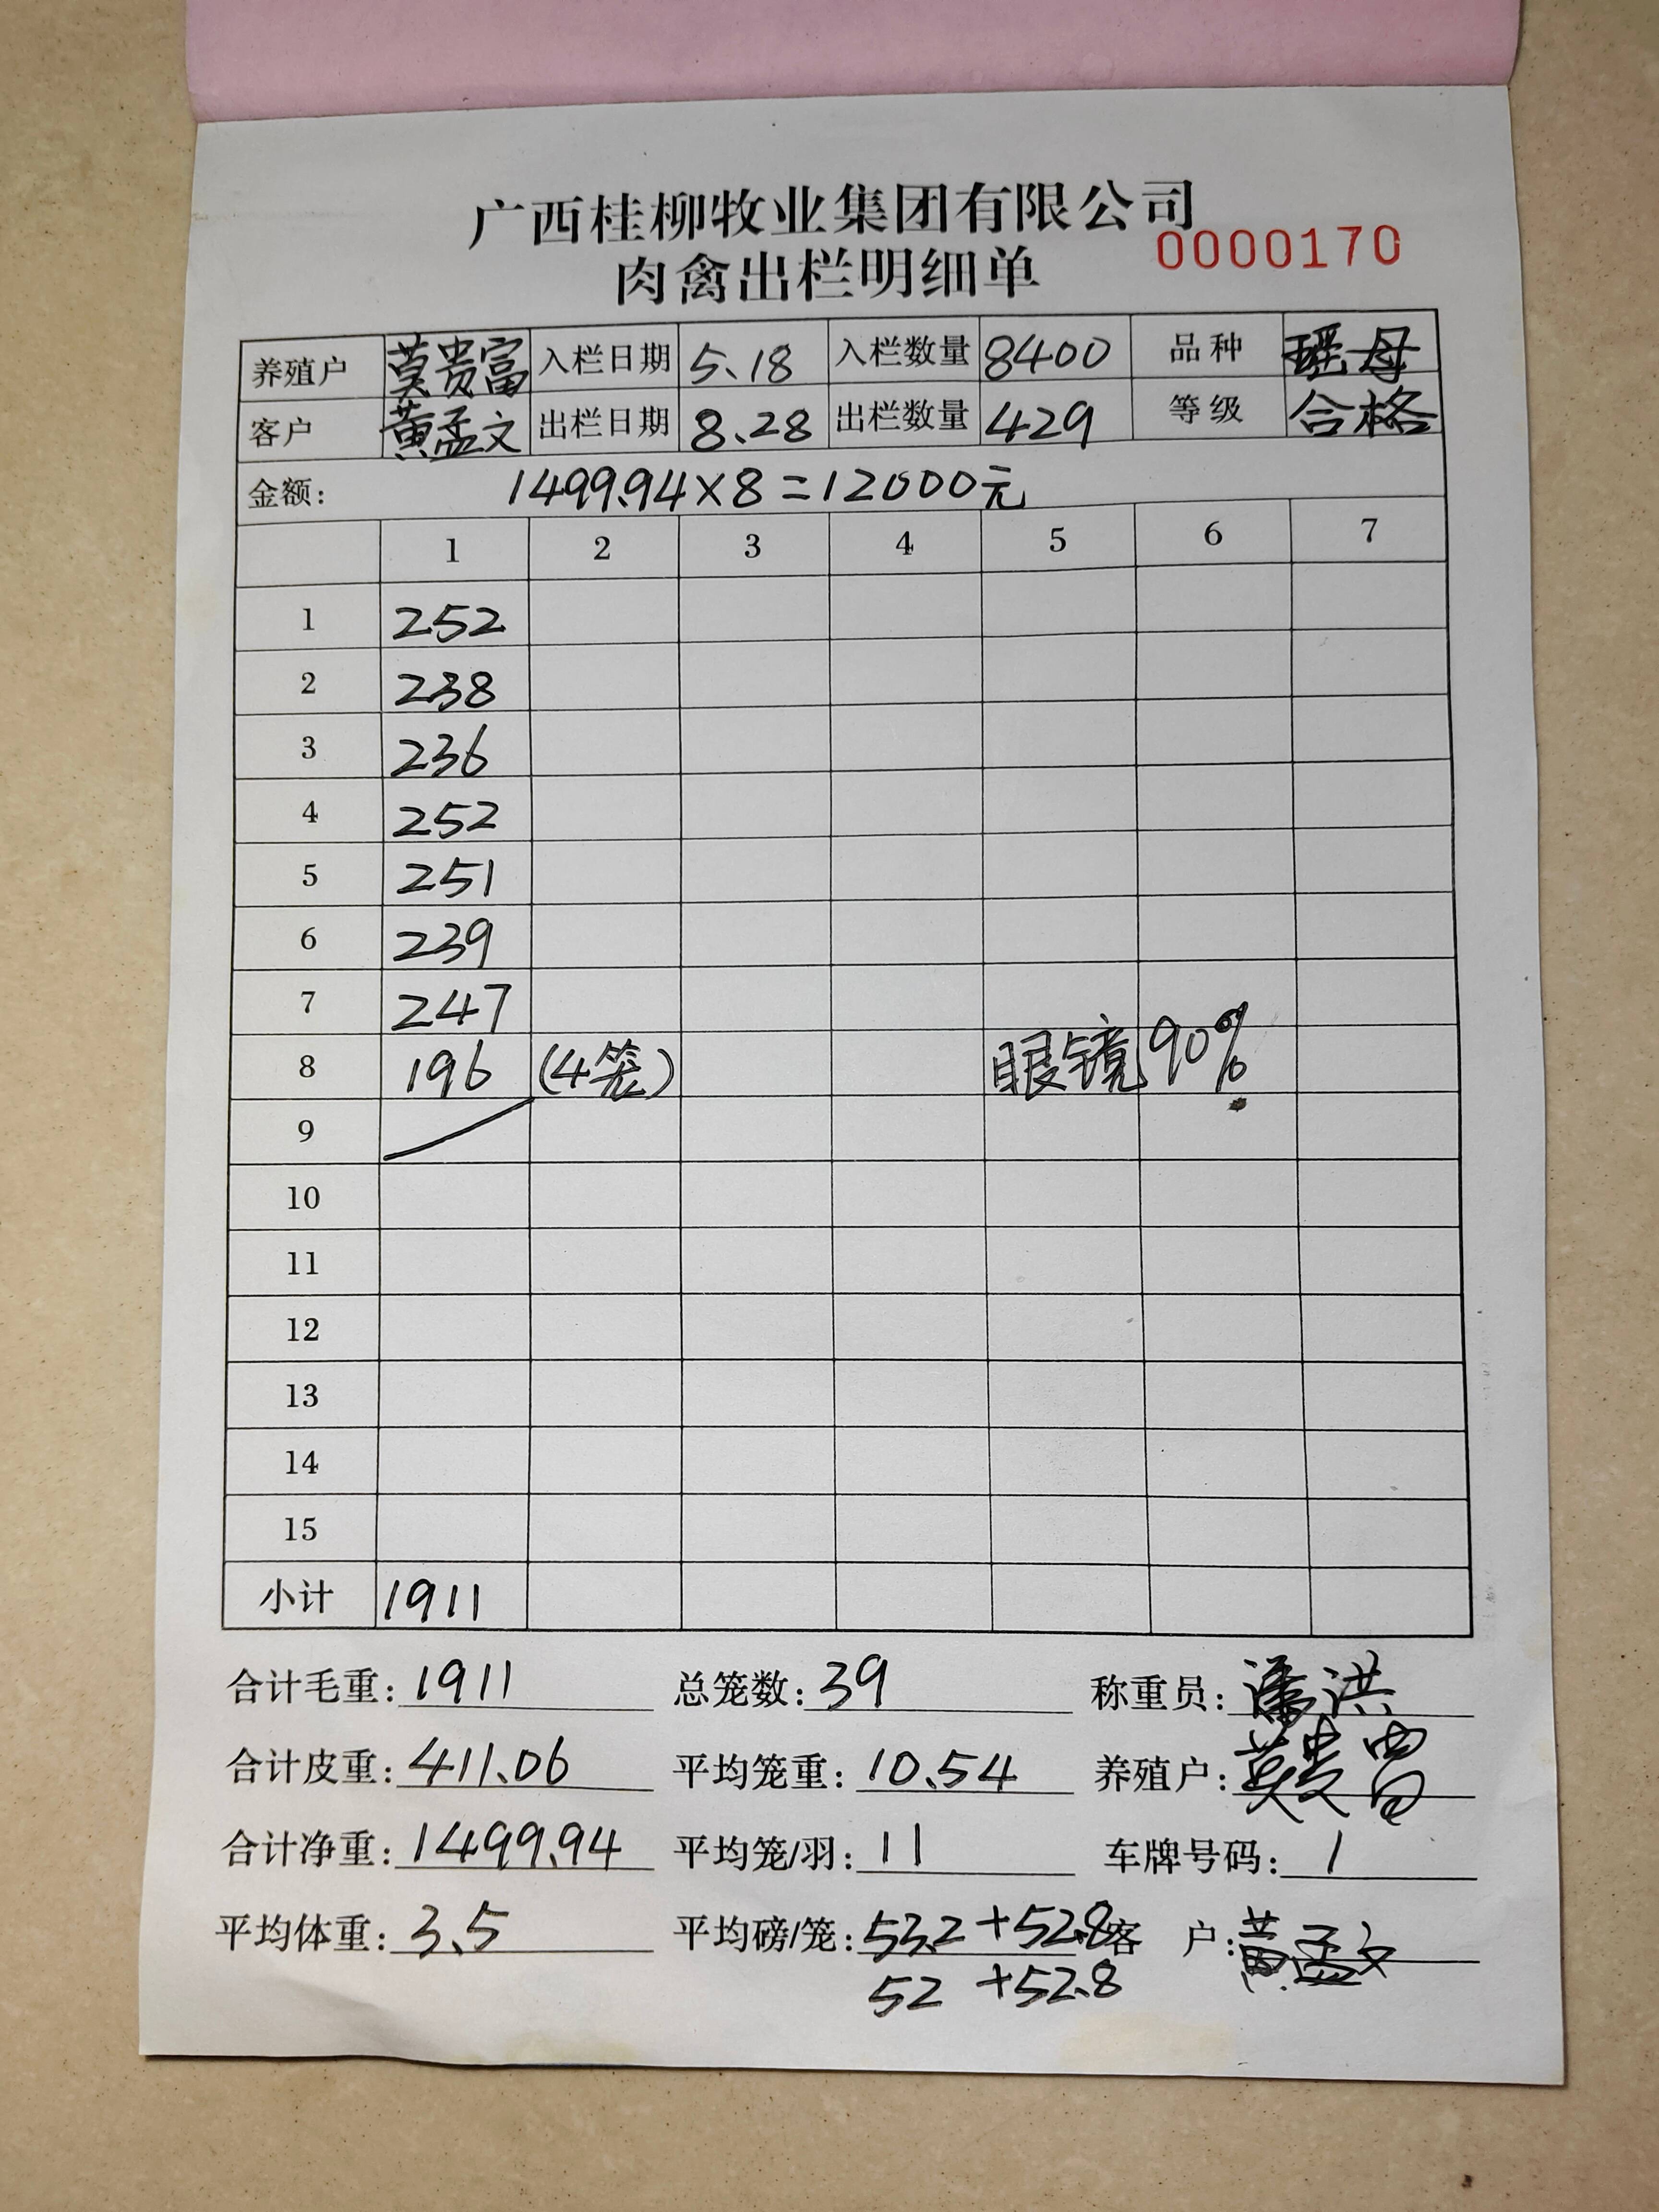 广西桂柳牧业集团有限公司
0000170
肉禽出栏明细单
养殖户 莫贵富 入栏日期 5.18 入栏数量 8400 品种 瑶母
客户 黄孟文 出栏日期 8.28 出栏数量 429 等级 合格
金额: 1499.94×8=12000元
1 2 3 4 5 6 7
1 252
2 238
3 236
4 252
5 251
6 239
7 247
8 196 (4笼) 眼镜90%
9
10
11
12
13
14
15
小计 1911
合计毛重: 1911 总笼数: 39 称重员: 潘洪
合计皮重: 411.06 平均笼重: 10.54 养殖户: 莫贵富
合计净重: 1499.94 平均笼/羽: 11 车牌号码: 1
平均体重: 3.5 平均磅/笼: 53.2+52.8 客户: 黄孟文
52 +52.8